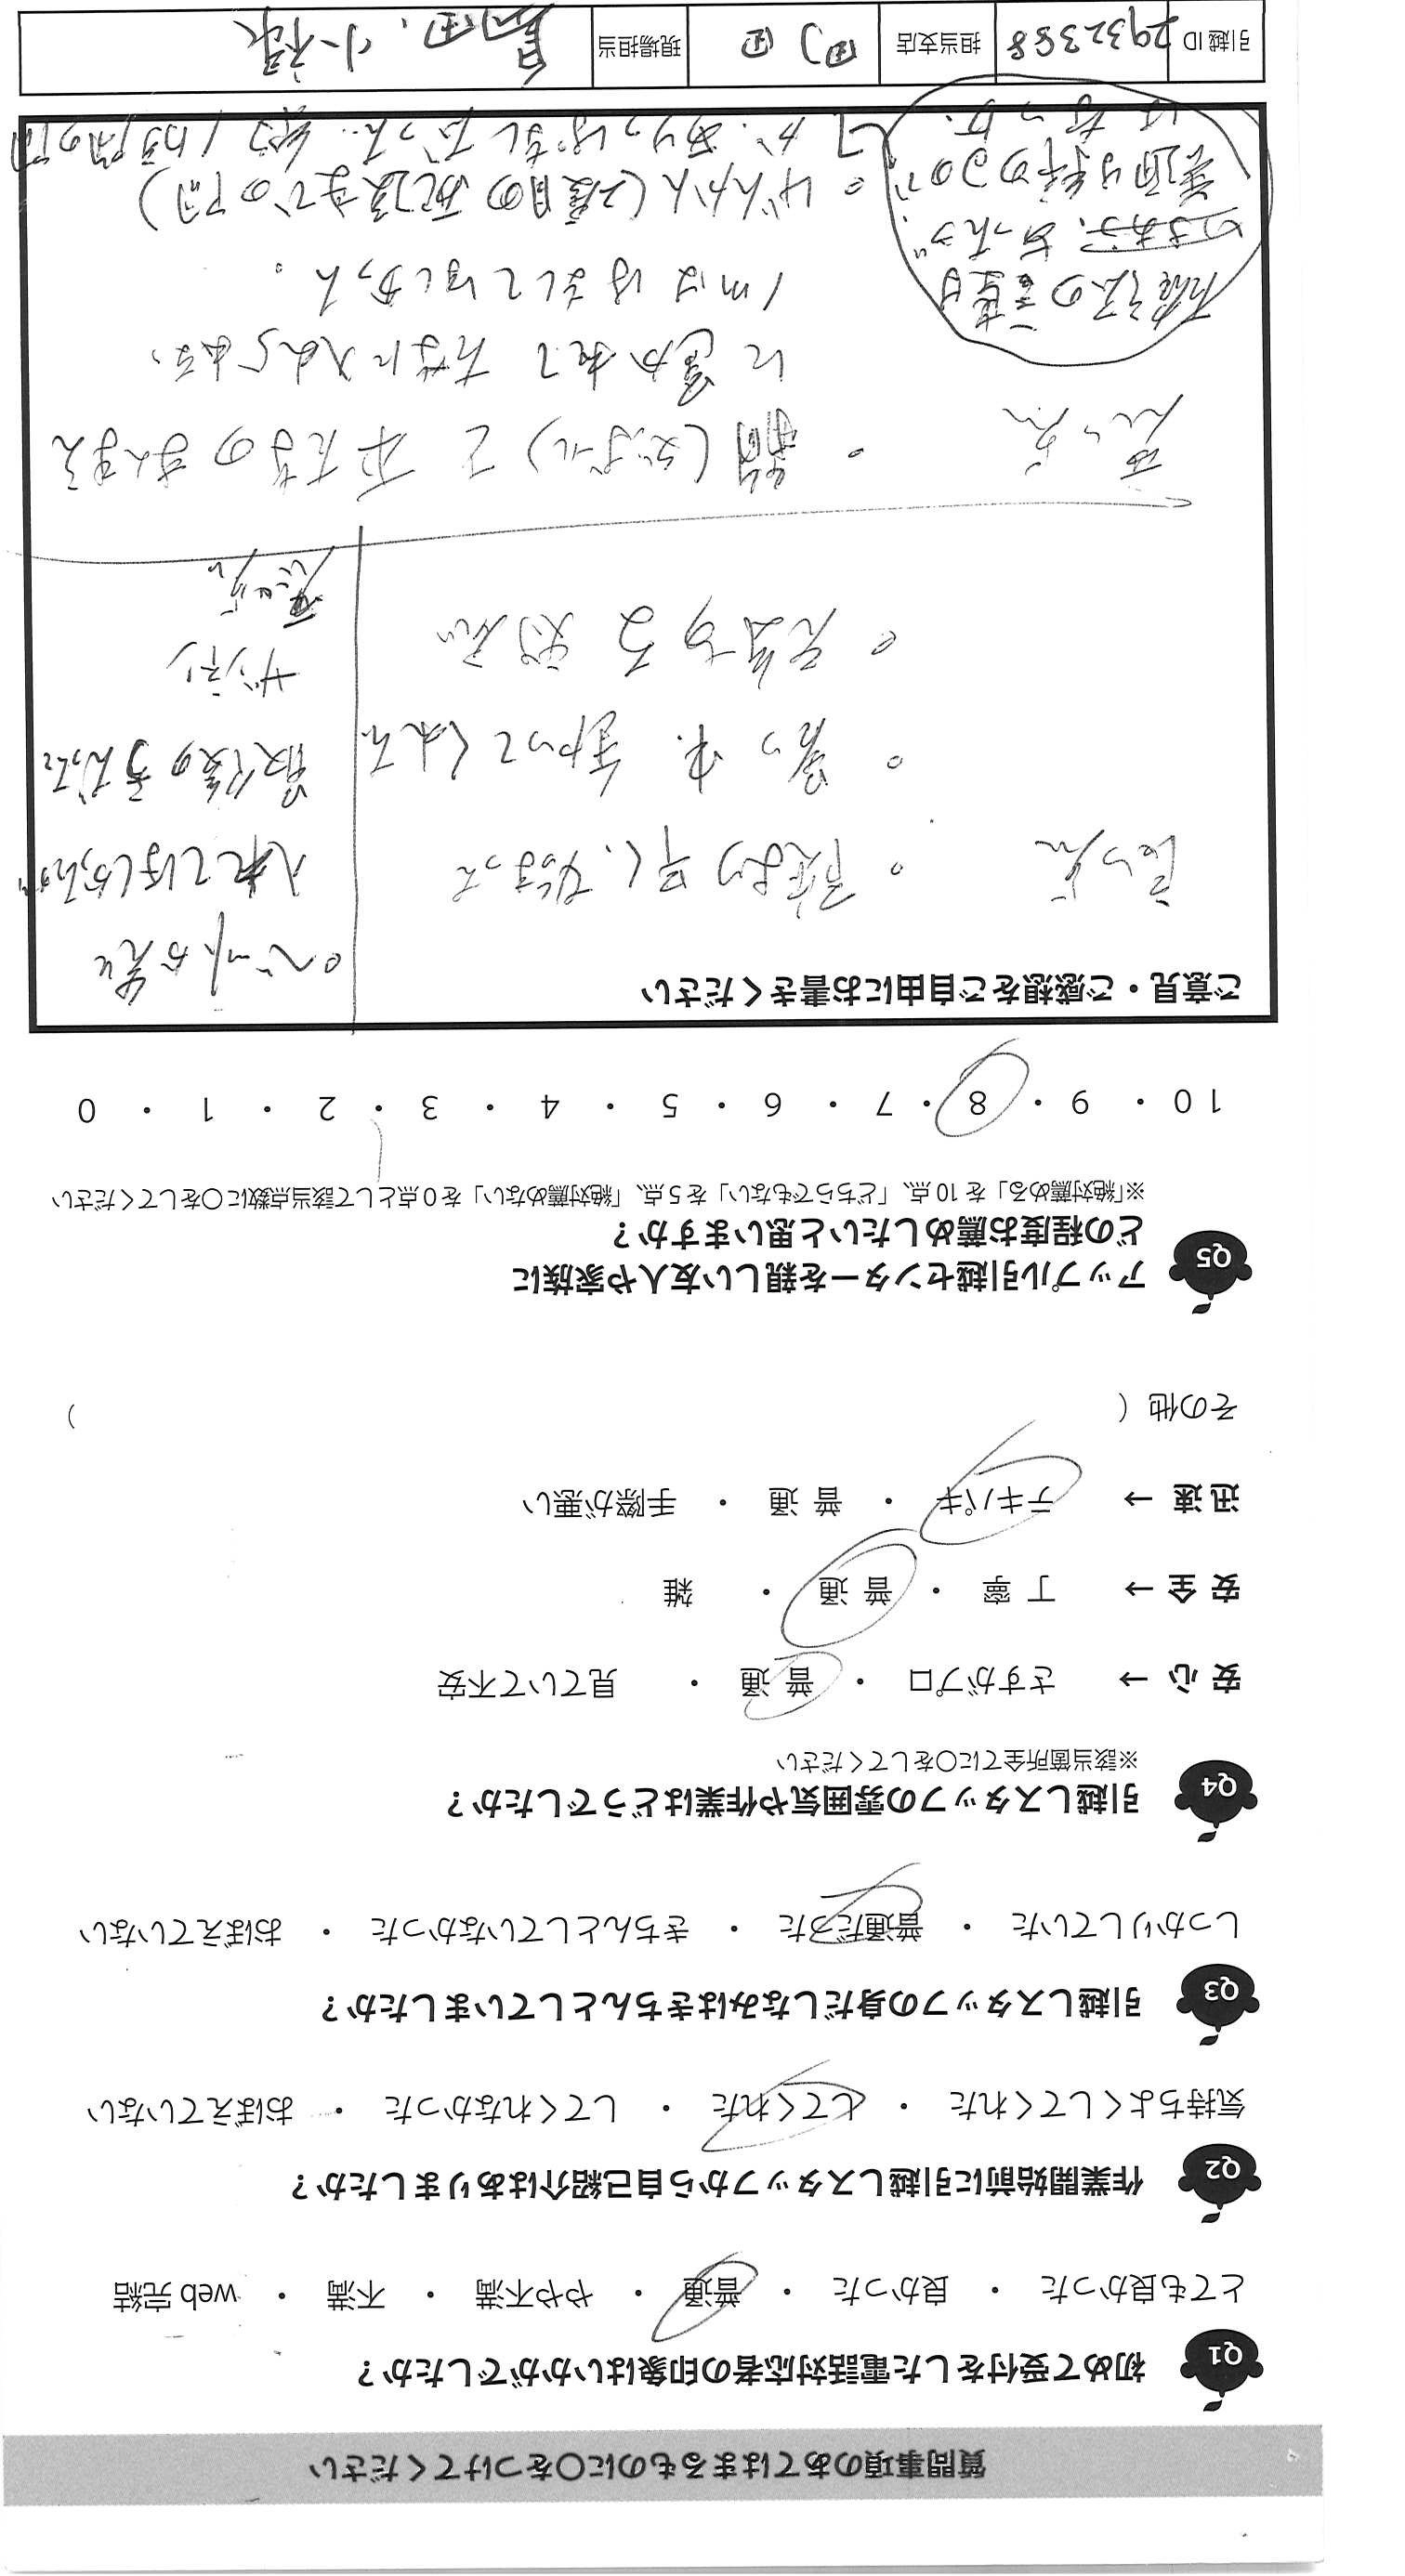 質問事項のあてはまるものに〇をつけてください
Q1 初めて受付をした電話対応者の印象はいかがでしたか？
とても良かった ・ 良かった ・ 普通 ・ やや不満 ・ 不満 ・ web 完結
Q2 作業開始前に引越しスタッフから自己紹介はありましたか？
気持ちよくしてくれた ・ してくれた ・ してくれなかった ・ おぼえていない
Q3 引越しスタッフの身だしなみはきちんとしていましたか？
しっかりしていた ・ 普通だった ・ きちんとしていなかった ・ おぼえていない
Q4 引越しスタッフの雰囲気や作業はどうでしたか？
※該当箇所全てに〇をしてください
安 心 → さすがプロ ・ 普 通 ・ 見ていて不安
安 全 → 丁 寧 ・ 普 通 ・ 雑
迅 速 → テキパキ ・ 普 通 ・ 手際が悪い
その他（ ）
Q5 アップル引越センターを親しい友人や家族に
どの程度お薦めしたいと思いますか？
※「絶対薦める」を 10 点、「どちらでもない」を 5 点、「絶対薦めない」を 0 点として該当点数に〇をしてください
10 ・ 9 ・ 8 ・ 7 ・ 6 ・ 5 ・ 4 ・ 3 ・ 2 ・ 1 ・ 0
ご意見・ご感想をご自由にお書きください
良い点 ・ 予定より早く、
・ 暑い中、
・ 元気ある対応
入れてほしかったが
最後の
ザンネン
悪い点 ・ 棚（ダンボール）と本だなのまんまえ
に置かれて
1mははなしてほしかった。
・ げんかん（2度目の配送までの間）
引越 ID 29323558 担当支店 町田 現場担当 島田、小祿